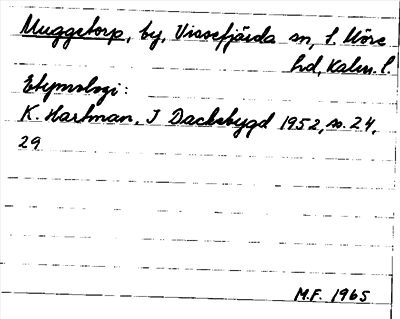 Muggetorp, by, Vissefjärda sn, S. Möre
hd, Kalm. l.
Etymologi:
K. Hartman, I Dackebygd 1952, s. 24,
29
M.F. 1965